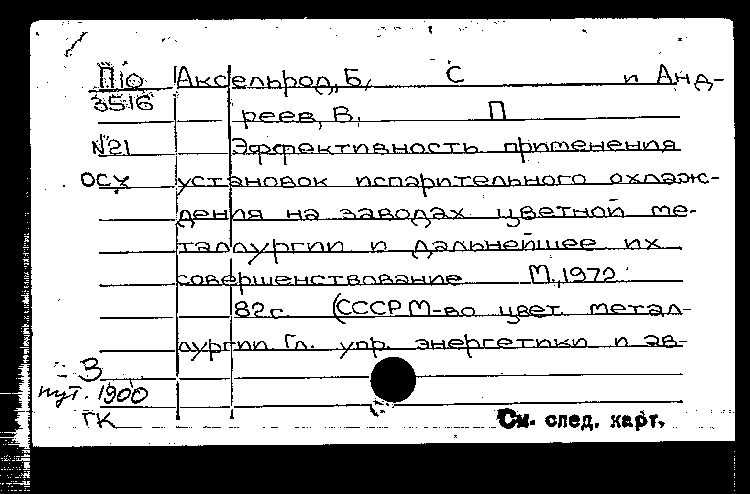 П10 Аксельрод, Б, С и Анд-
3516 реев, В, П
№21 Эффективность применения
ОСУ установок испарительного охлаж-
дения на заводах цветной ме-
таллургии и дальнейшее их
совершенствование М., 1972
82с. (СССР М-во цвет. метал-
лургии. Гл. упр. энергетики и ав-
З
пут. 1900
ГК См. след. карт.